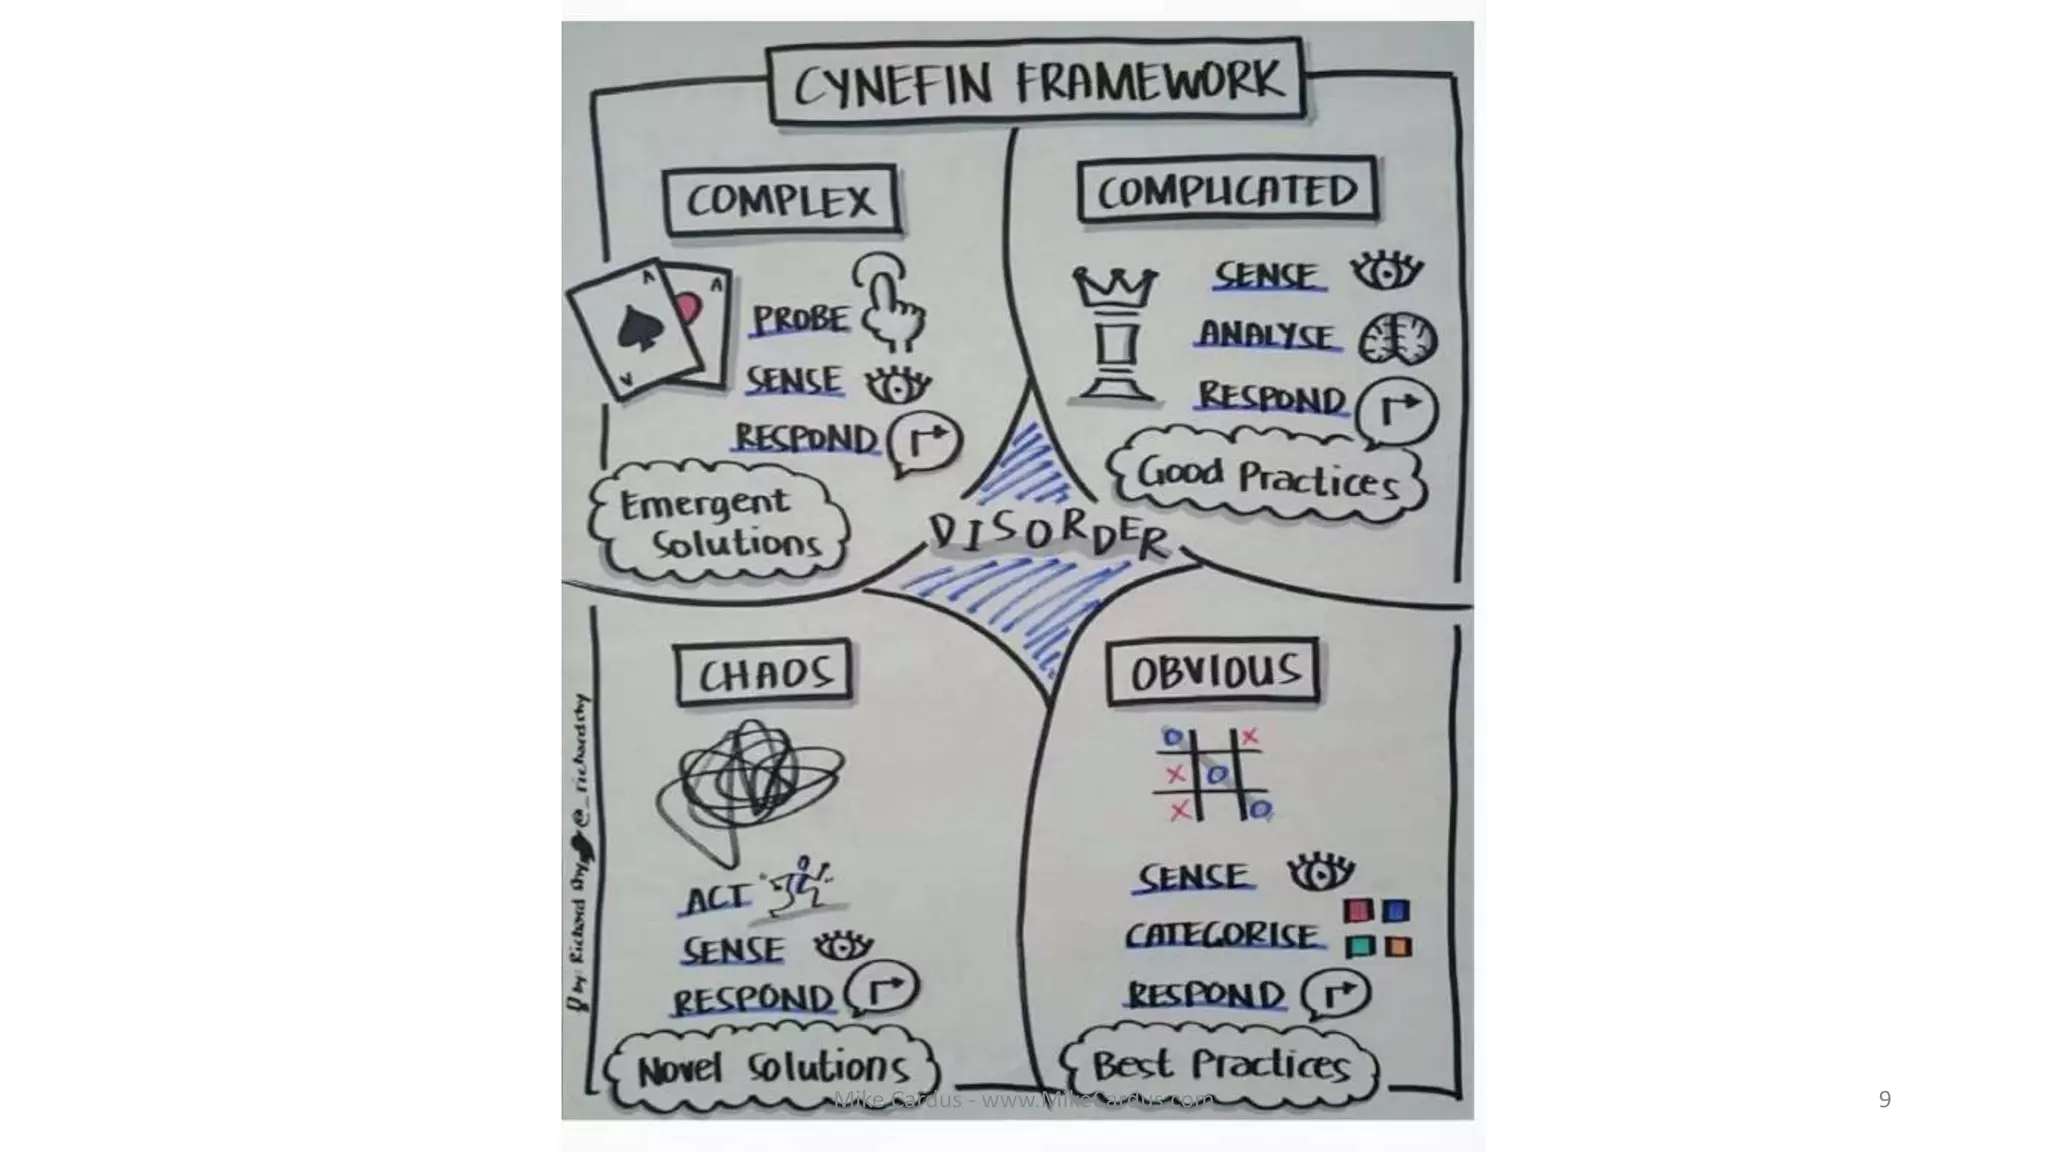 CYNEFIN FRAMEWORK
COMPLEX
A
A
A
PROBE
SENSE
RESPOND
Emergent
Solutions
COMPLICATED
SENSE
ANALYSE
RESPOND
Good Practices
DISORDER
CHAOS
ACT
SENSE
RESPOND
Novel Solutions
OBVIOUS
O X
X O
X O
SENSE
CATEGORISE
RESPOND
Best Practices
by: Richard Shy @_richardshy
Mike Cardus - www.MikeCardus.com
9